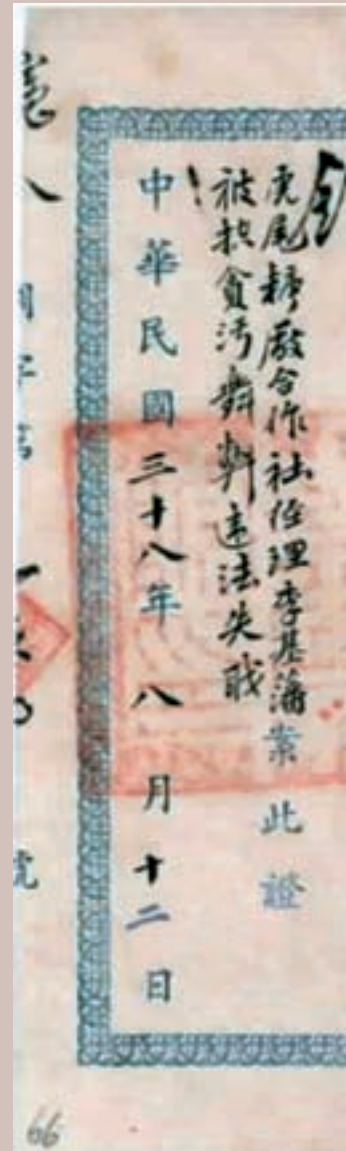 虎尾糖廠合作社經理李基藩
被控貪污舞弊違法失職 案此證
中華民國三十八年八月十二日
憲
號
66